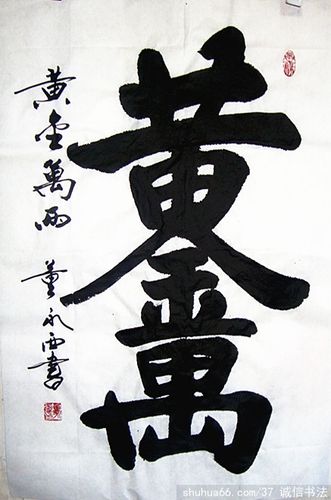 黄金萬兩
黄金萬兩 董永西書
shuhua66.com/37 诚信书法